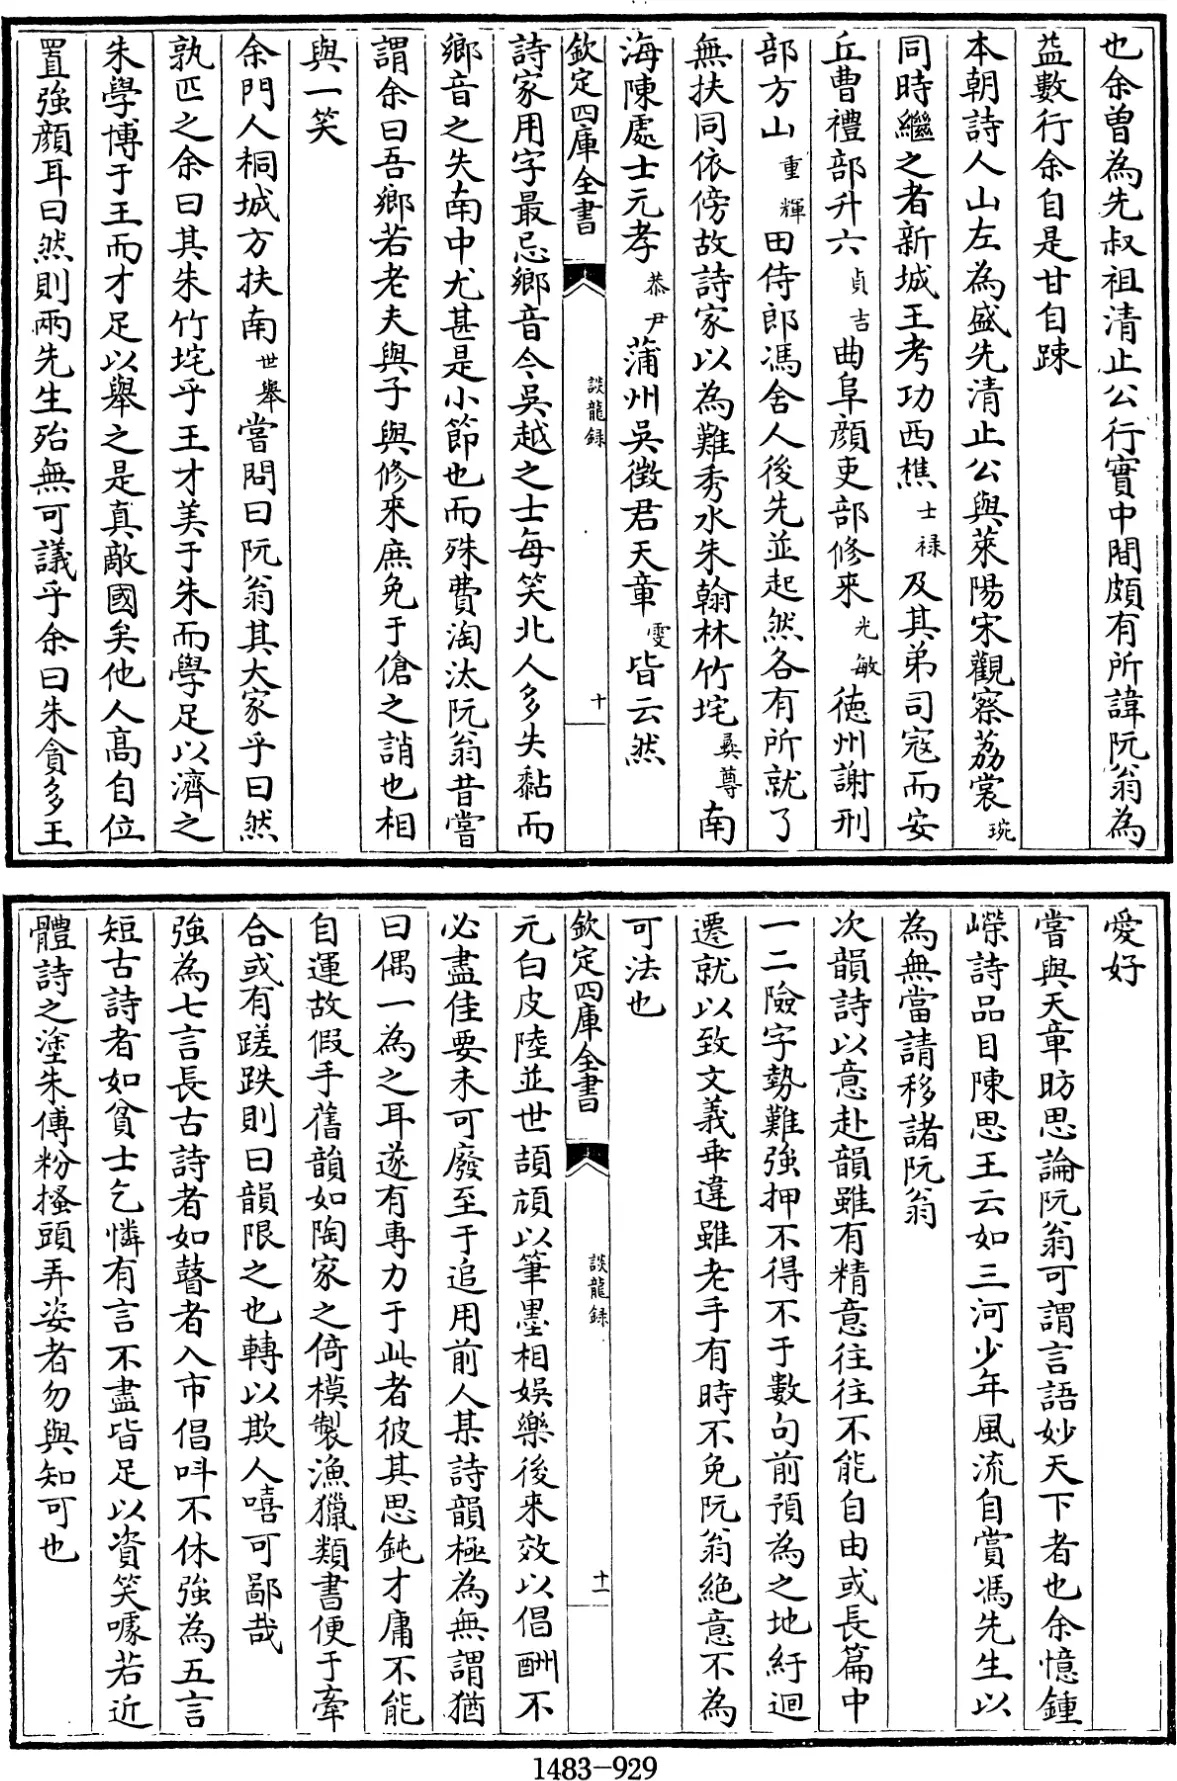 也余曾為先叔祖清止公行實中間頗有所諱阮翁為
益數行余自是甘自踈
本朝詩人山左為盛先清止公與萊陽宋觀察荔裳琬
同時繼之者新城王考功西樵士祿及其弟司寇而安
丘曹禮部升六貞吉曲阜顏吏部修来光敏德州謝刑
部方山重輝田侍郎馮舍人後先並起然各有所就了
無扶同依傍故詩家以為難秀水朱翰林竹垞彛尊南
海陳處士元孝恭尹蒲州吳徵君天章雯皆云然
欽定四庫全書 談龍録 十
詩家用字最忌鄉音今吳越之士每笑北人多失黏而
鄉音之失南中尤甚是小節也而殊費淘汰阮翁昔嘗
謂余曰吾鄉若老夫與子與修来庶免于傖之誚也相
與一笑
余門人桐城方扶南世舉嘗問曰阮翁其大家乎曰然
孰匹之余曰其朱竹垞乎王才美于朱而學足以濟之
朱學博于王而才足以舉之是真敵國矣他人髙自位
置強顏耳曰然則兩先生殆無可議乎余曰朱貪多王
愛好
嘗與天章昉思論阮翁可謂言語妙天下者也余憶鍾
嶸詩品目陳思王云如三河少年風流自賞馮先生以
為無當請移諸阮翁
次韻詩以意赴韻雖有精意往往不能自由或長篇中
一二險字勢難強押不得不于數句前預為之地紆迴
遷就以致文義乖違雖老手有時不免阮翁絶意不為
可法也
欽定四庫全書 談龍録 十一
元白皮陸並世頡頏以筆墨相娛樂後来效以倡酬不
必盡佳要未可廢至于追用前人某詩韻極為無謂猶
曰偶一為之耳遂有專力于此者彼其思鈍才庸不能
自運故假手舊韻如陶家之倚模製漁獵類書便于牽
合或有蹉跌則曰韻限之也轉以欺人嘻可鄙哉
強為七言長古詩者如瞽者入市倡呌不休強為五言
短古詩者如貧士乞憐有言不盡皆足以資笑噱若近
體詩之塗朱傅粉搔頭弄姿者勿與知可也
1483-929